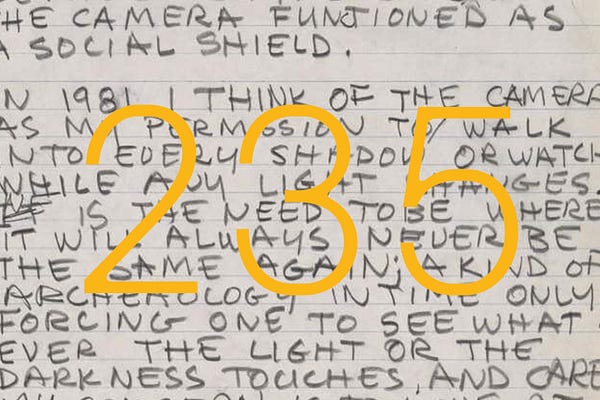 HE CAMERA FUNCTIONED AS
A SOCIAL SHIELD.
IN 1981 I THINK OF THE CAMERA
AS MY PERMISSION TO WALK
INTO EVERY SHADOW OR WATCH
WHILE ANY LIGHT CHANGES.
IS THE NEED TO BE WHERE
IT WILL ALWAYS NEVER BE
THE SAME AGAIN; A KIND OF
ARCHEAOLOGY IN TIME ONLY
FORCING ONE TO SEE WHAT
EVER THE LIGHT OR THE
DARKNESS TOUCHES, AND CARE
235